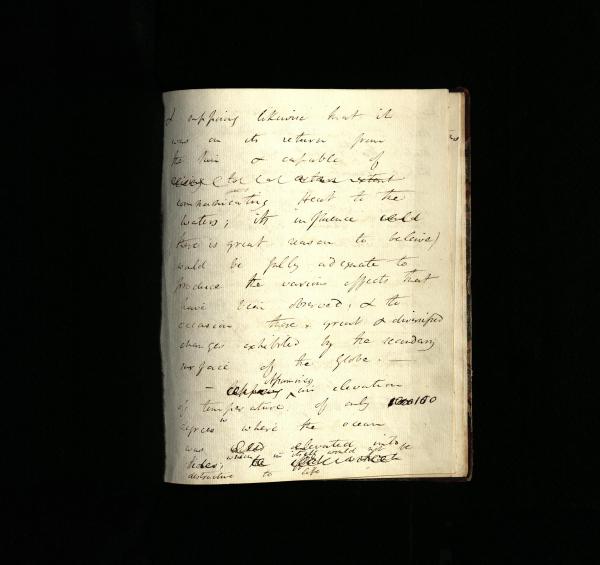 & supposing likewise that it
was on its return from
the Sun & capable of
communicating Heat to the
Waters; its influence could
there is great reason to beleive)
would be fully adequate to
produce the various effects that
have been observed, & to
occasion those great & diversified
changes exhibited by the secondary
surface of the Globe. —
— Assuming an elevation
of temperature, of only 150
degrees where the ocean
was elevated into
tides; which in itself would not be
destructive to life